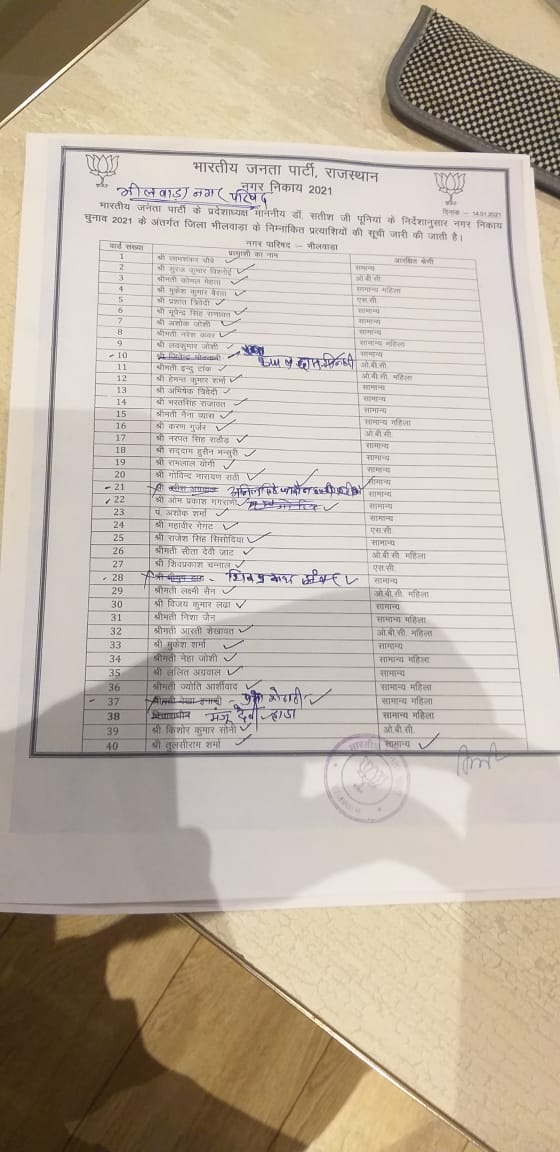 भारतीय जनता पार्टी, राजस्थान
नगर निकाय 2021
भीलवाड़ा नगर परिषद
दिनांक - 14.01.2021
भारतीय जनता पार्टी के प्रदेशाध्यक्ष माननीय डॉ. सतीश जी पूनियां के निर्देशानुसार नगर निकाय
चुनाव 2021 के अंतर्गत जिला भीलवाड़ा के निम्नांकित प्रत्याशियों की सूची जारी की जाती है।
नगर परिषद :- भीलवाड़ा
वार्ड संख्या प्रत्याशी का नाम आरक्षित श्रेणी
1 श्री चौबे सामान्य
2 श्री सूरज कुमार विश्नोई ओ.बी.सी.
3 श्रीमती कोमल मेहता सामान्य महिला
4 श्री मुकेश कुमार बैरवा एस.सी.
5 श्री प्रशांत त्रिवेदी सामान्य
6 श्री भूपेन्द्र सिंह राणावत सामान्य
7 श्री अशोक जोशी सामान्य
8 श्रीमती नरेश कंवर सामान्य महिला
9 श्री लवकुमार जोशी सामान्य
10 श्री ओ.बी.सी.
11 श्रीमती इन्दु टांक ओ.बी.सी. महिला
12 श्री हेमन्त कुमार शर्मा सामान्य
13 श्री अभिषेक त्रिवेदी सामान्य
14 श्री भरतसिंह राजावत सामान्य
15 श्रीमती नैना व्यास सामान्य महिला
16 श्री करण गुर्जर ओ.बी.सी.
17 श्री नरपत सिंह राठौड़ सामान्य
18 श्री सद्दाम हुसैन मन्सूरी सामान्य
19 श्री रामलाल योगी सामान्य
20 श्री गोविन्द नारायण राठी सामान्य
21 श्री सामान्य
22 श्री ओम प्रकाश गगरानी सामान्य
23 पं. अशोक शर्मा सामान्य
24 श्री महावीर गेगट एस.सी.
25 श्री राजेश सिंह सिसोदिया सामान्य
26 श्रीमती सीता देवी जाट ओ.बी.सी. महिला
27 श्री शिवप्रकाश चन्नाल एस.सी.
28 श्री सामान्य
29 श्रीमती लक्ष्मी सैन ओ.बी.सी. महिला
30 श्री विजय कुमार लढा सामान्य
31 श्रीमती निशा जैन सामान्य महिला
32 श्रीमती आरती शेखावत ओ.बी.सी. महिला
33 श्री मुकेश शर्मा सामान्य
34 श्रीमती नेहा जोशी सामान्य महिला
35 श्री ललित अग्रवाल सामान्य
36 श्रीमती ज्योति आर्शीवाद सामान्य महिला
37 श्रीमती सामान्य महिला
38 विचाराधीन मंजू देवी हाडा सामान्य महिला
39 श्री किशोर कुमार सोनी ओ.बी.सी.
40 श्री तुलसीराम शर्मा सामान्य